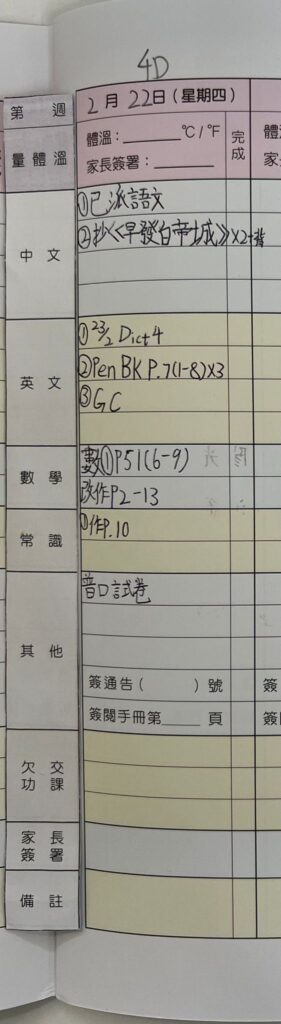 4D
第 週
2月22日(星期四)
量體溫
體溫：______℃/℉
家長簽署：______
完成
中文
①已派語文
②抄《早發白帝城》x2+背
英文
①23/2 Dict 4
②Pen BK P.7(1-8)x3
③GC
數學
數①P51(6-9)
改作P2-13
常識
①作P.10
其他
普口試卷
簽通告( )號
簽閱手冊第____頁
欠交功課
家長簽署
備註